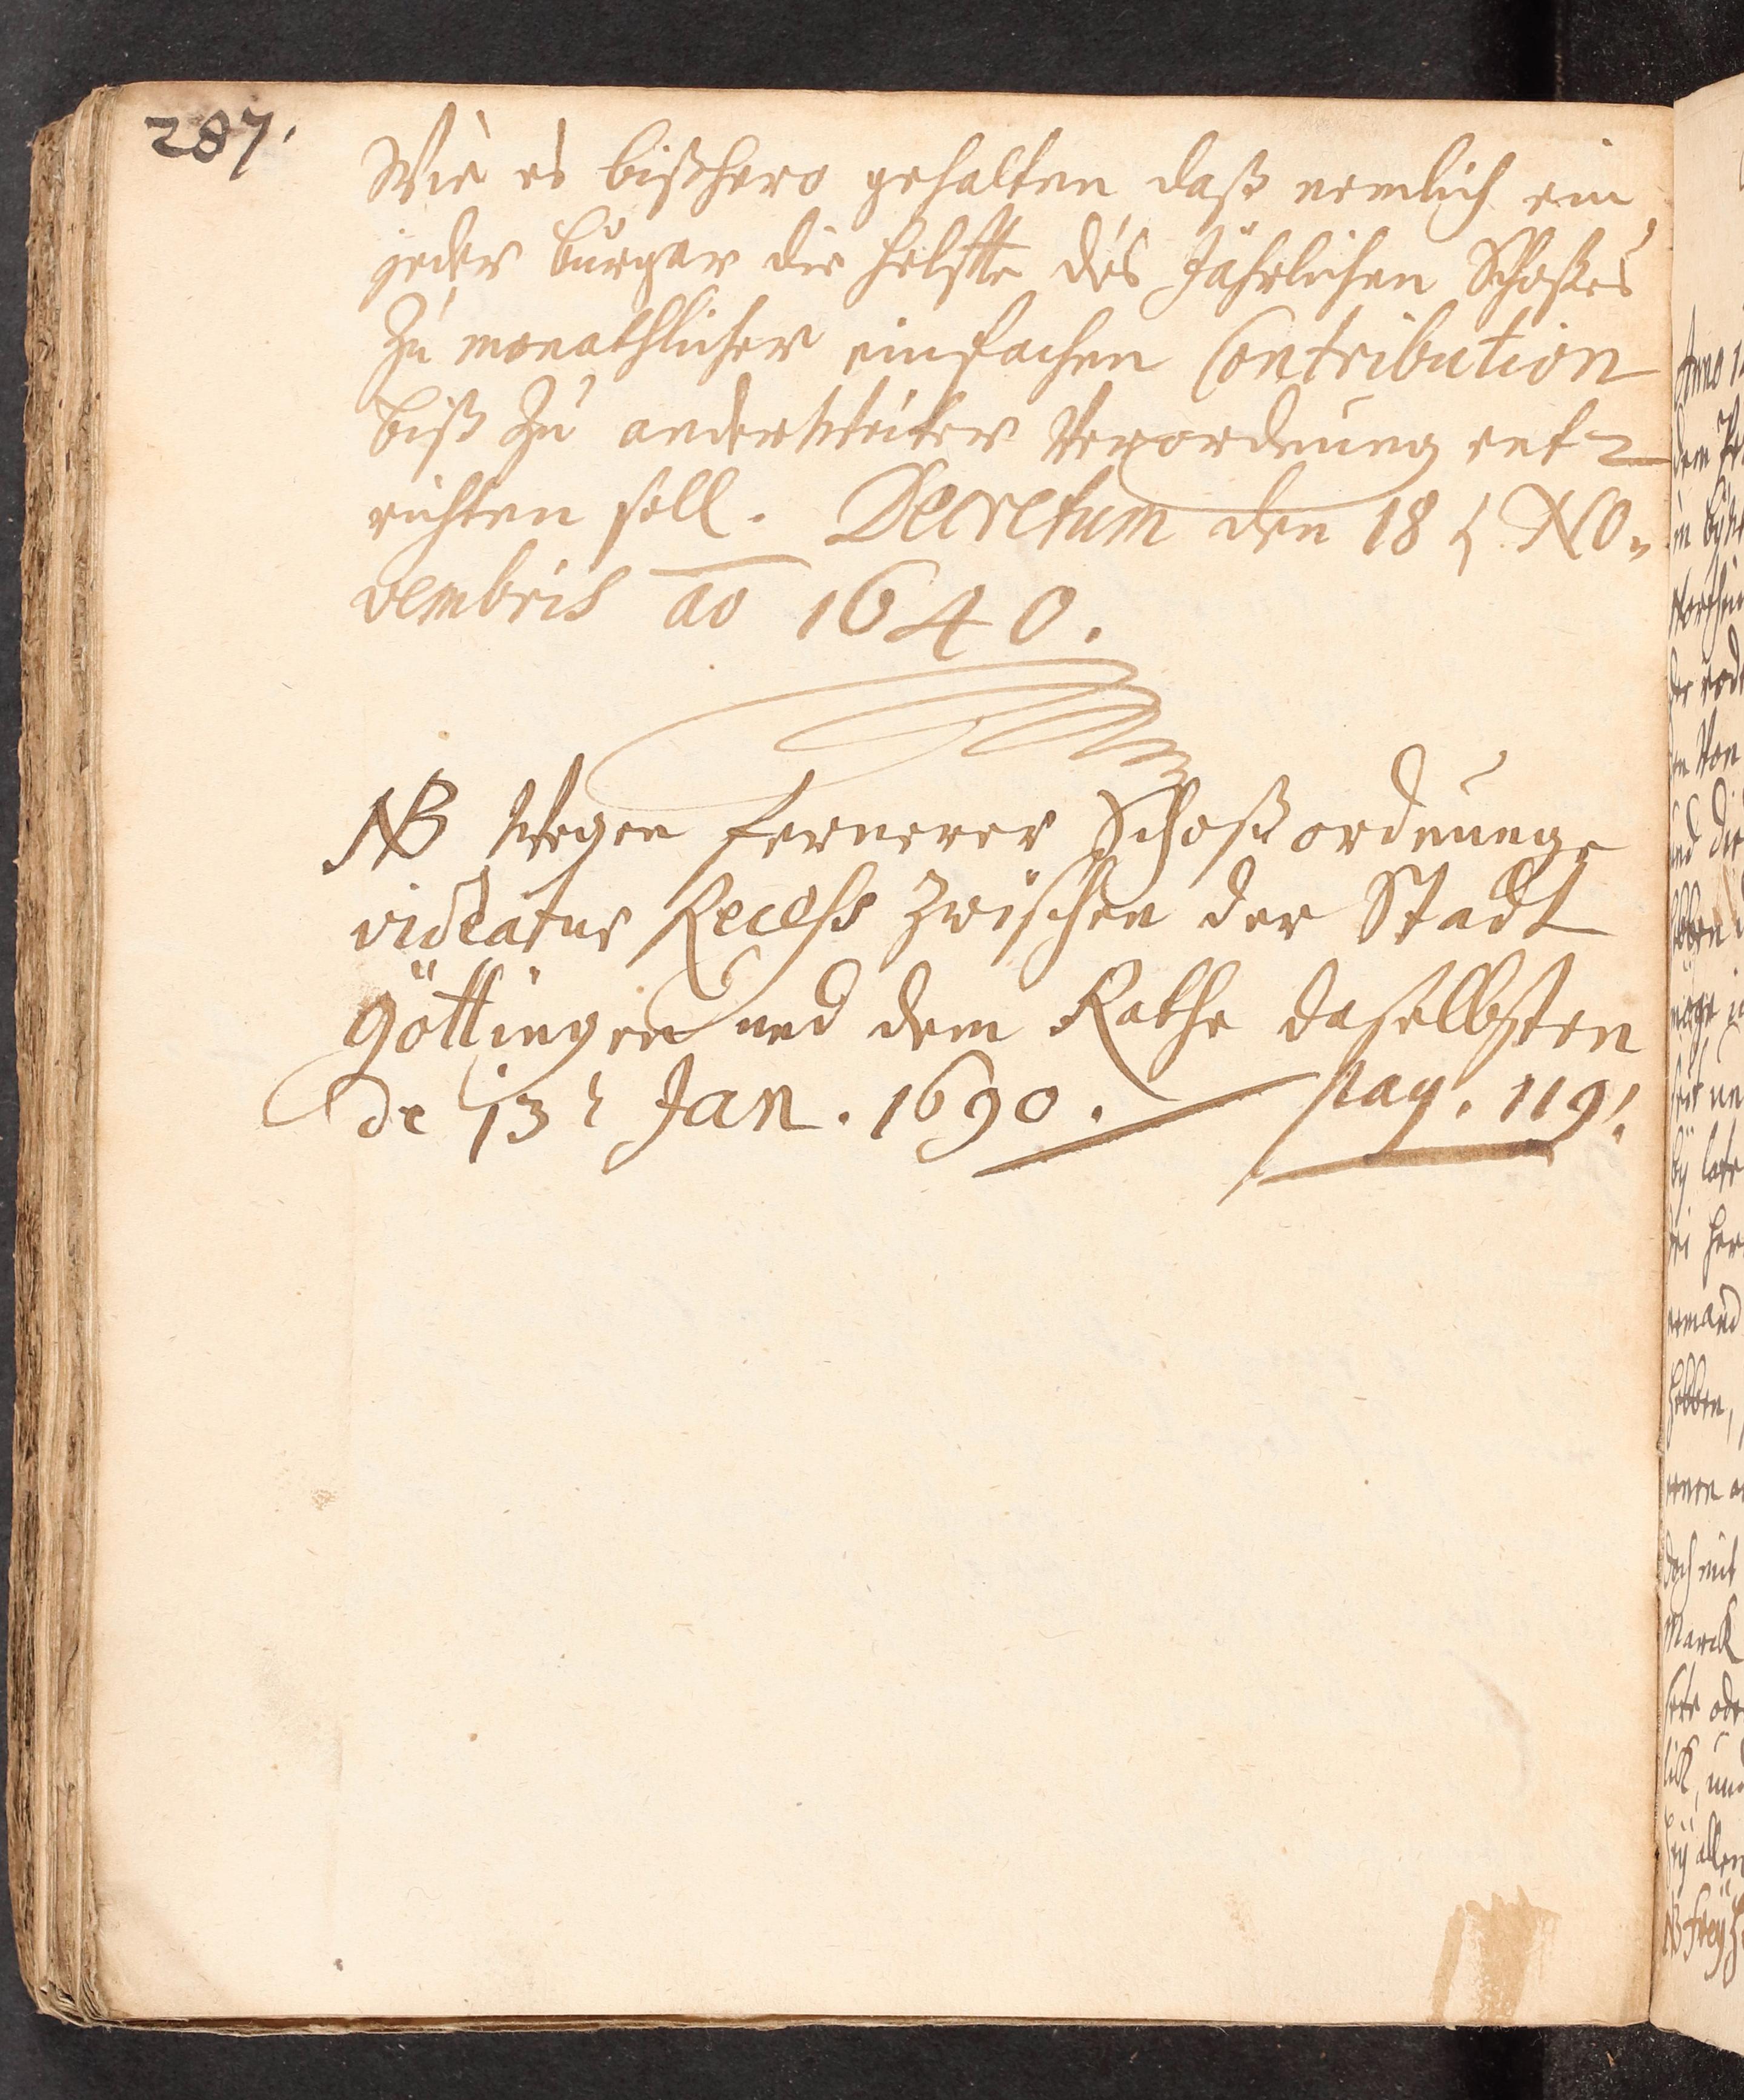 287.
Wie es bißhero gehalten daß nemlich ein
jeder bürger die helffte des Jährlichen Schoßes
Zu monathlicher einfachen Contribution
biß Zu anderweiter Verordnung ent-
richten soll. Decretum den 18 t. No-
vembris ao 1640.
NB Wegen fernerer Schoßordnung
videatur Recess zwischen der Stadt
Göttingen und dem Rathe daselbsten
de 13 t Jan. 1690. pag. 119.